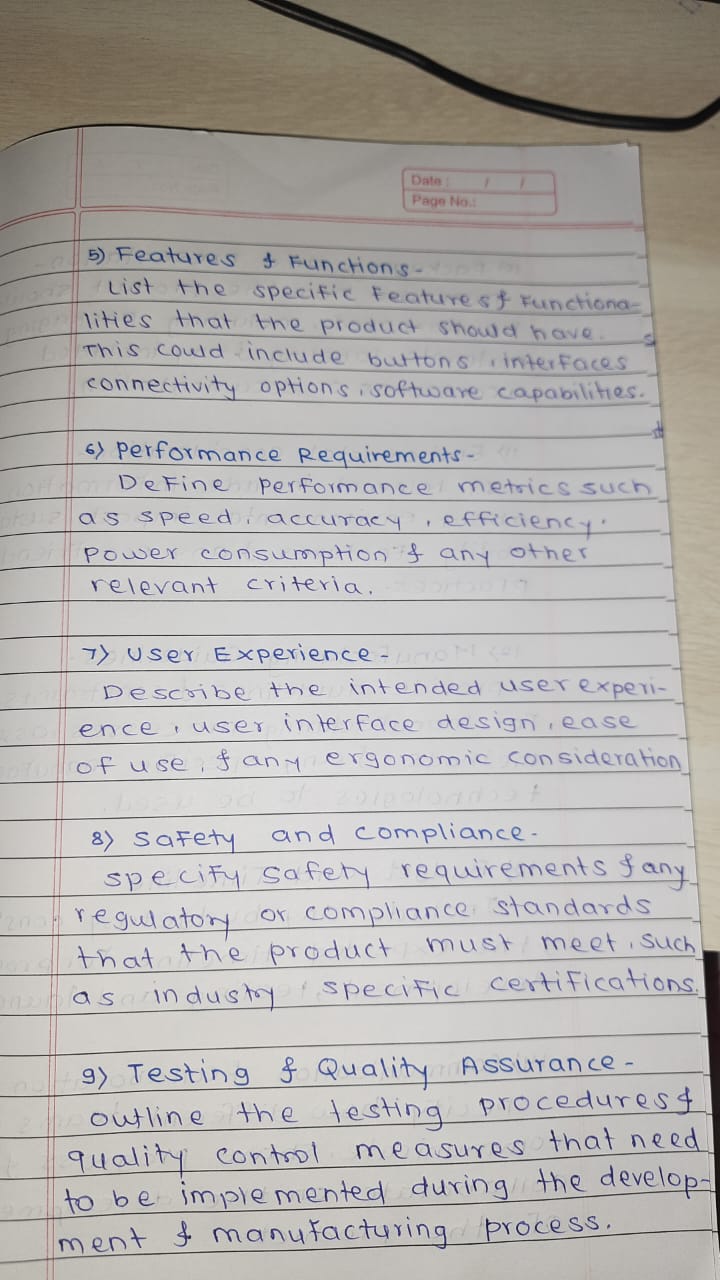 Date : / /
Page No.:
5) Features & Functions -
List the specific features & Functiona-
lities that the product should have.
This could include buttons, interfaces
connectivity options, software capabilities.
6) Performance Requirements -
Define performance metrics such
as speed, accuracy, efficiency,
power consumption & any other
relevant criteria.
7) User Experience -
Describe the intended user experi-
ence, user interface design, ease
of use, & any ergonomic consideration
8) Safety and compliance -
specify safety requirements & any
regulatory or compliance standards
that the product must meet, such
as industry specific certifications.
9) Testing & Quality Assurance -
outline the testing procedures &
quality control measures that need
to be implemented during the develop-
ment & manufacturing process.